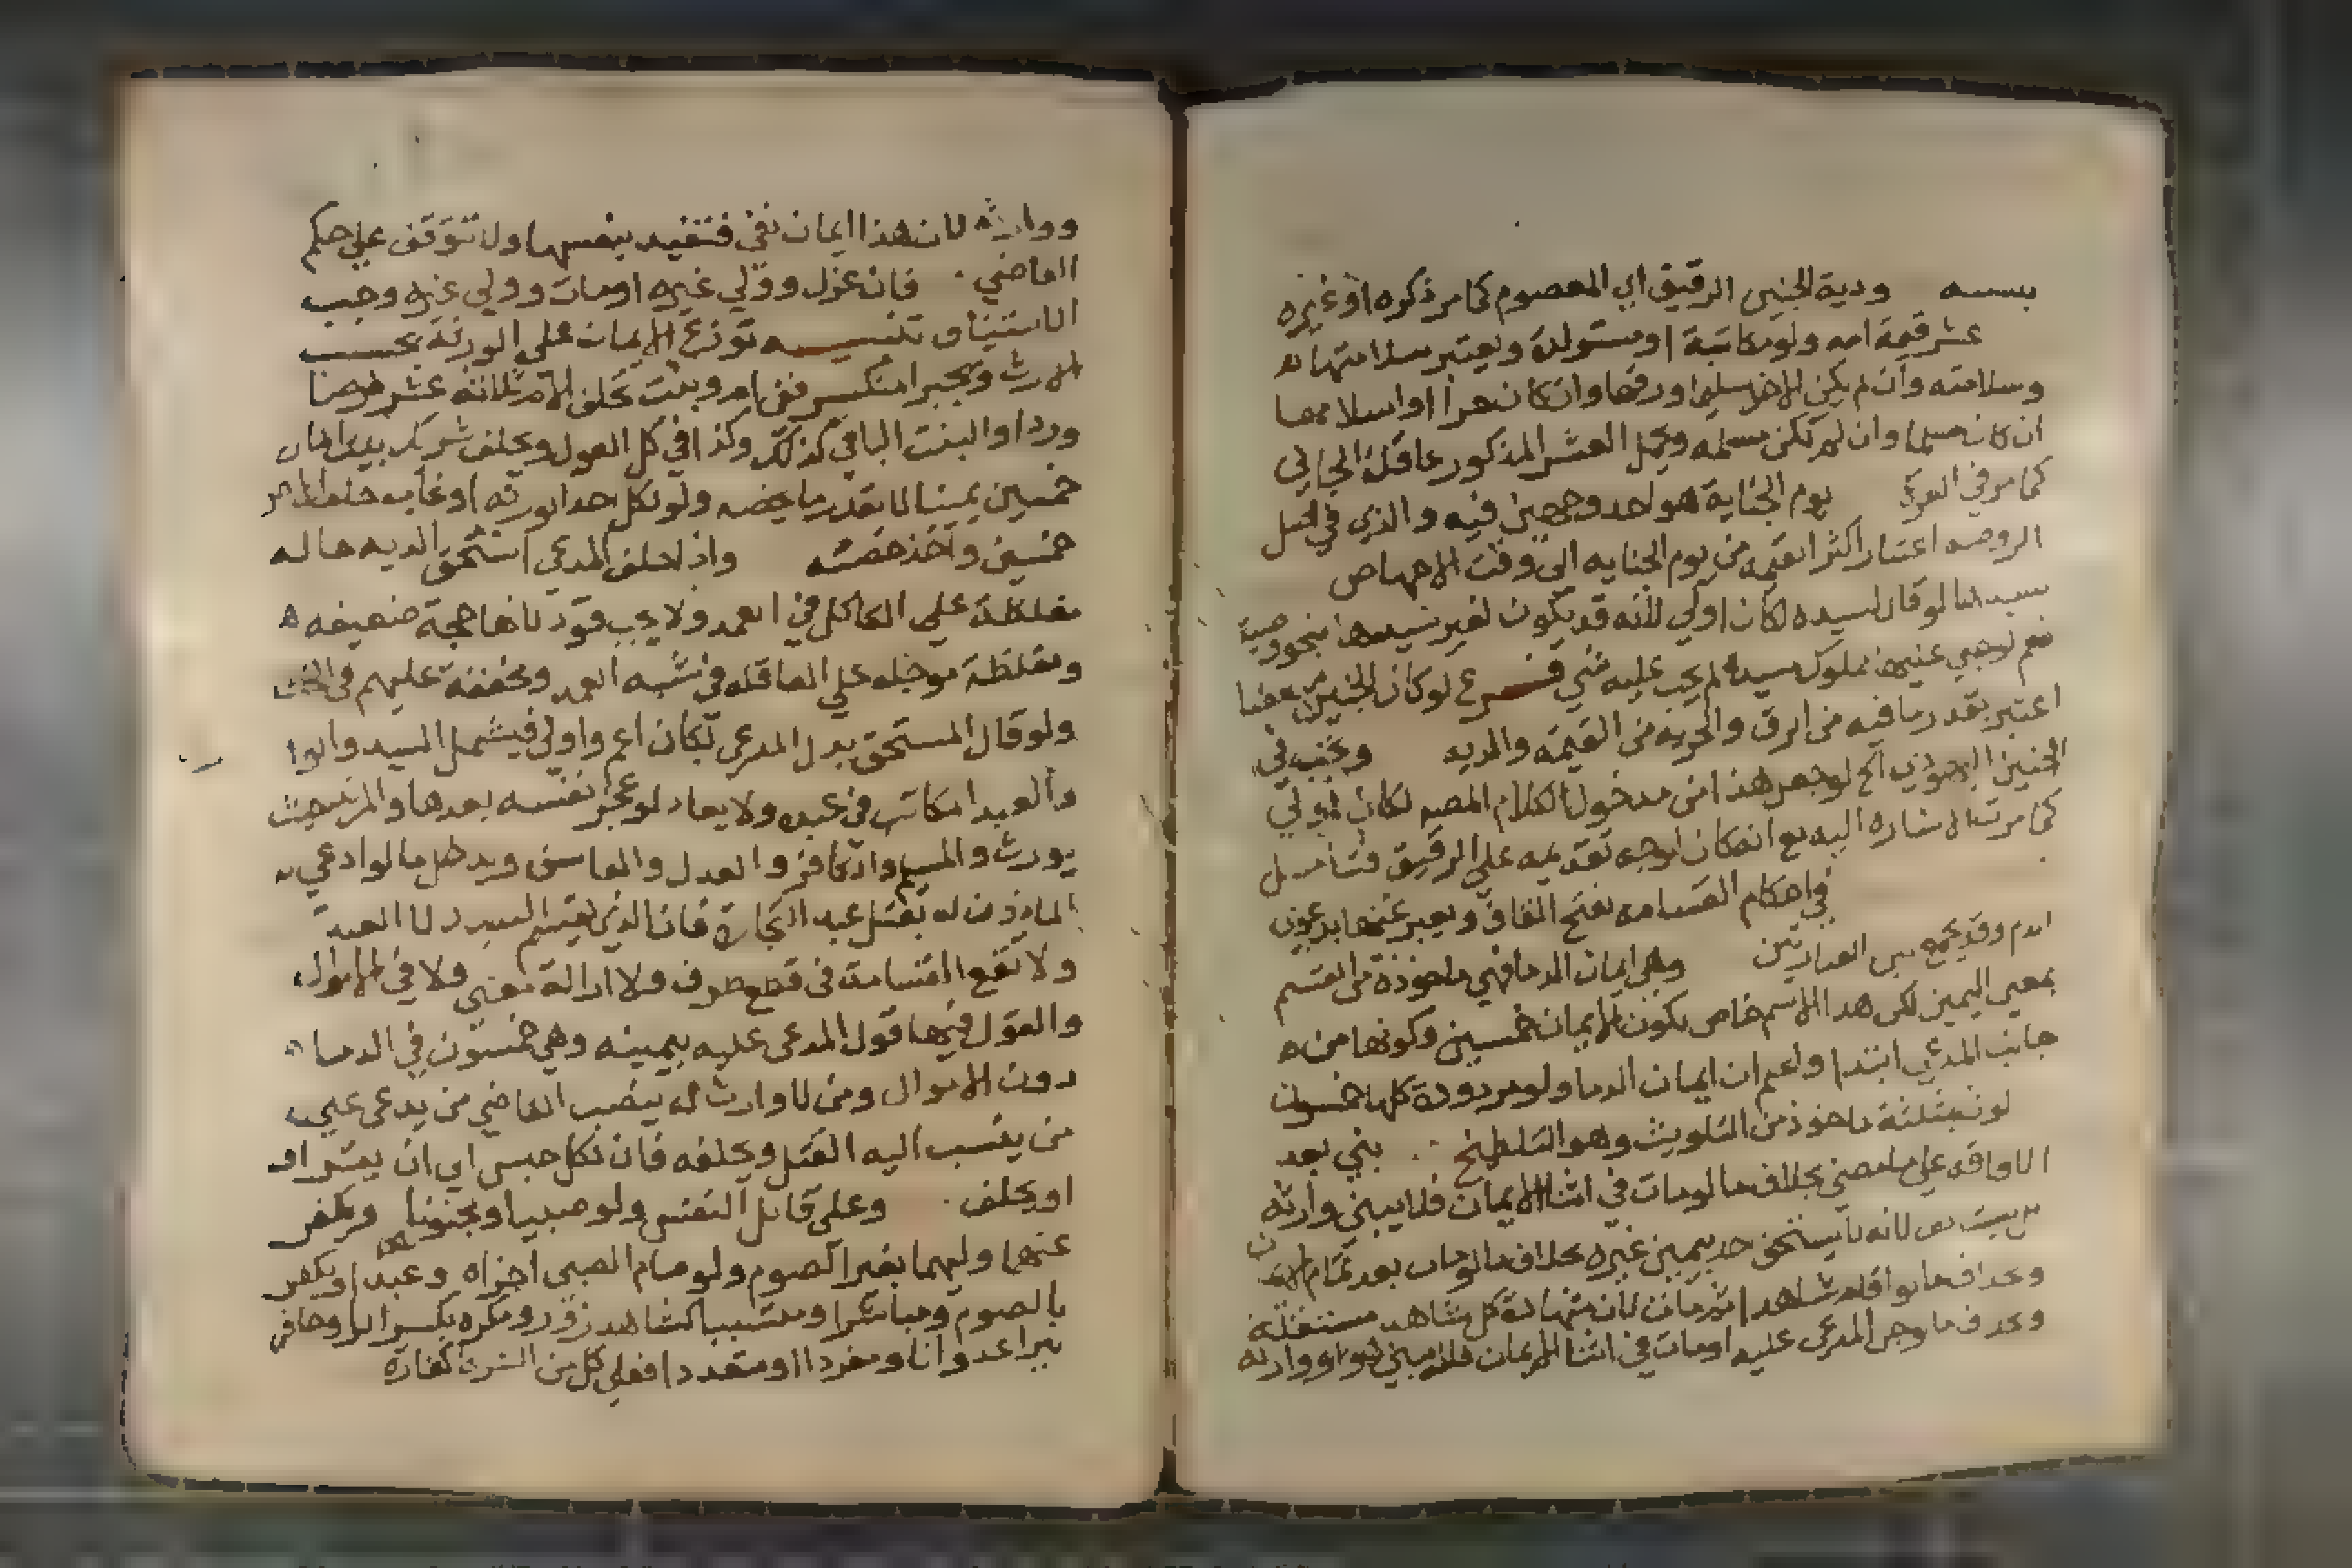 ودية الجنين الرقيق اي المعصوم كما مر ذكره او غيره
عشر قيمة امه ولو مكاتبة او مستولدة ويعتبر سلامتها
وسلامته وان لم يكن الاخر سليما ورقها وان كان حرا او اسلامها
ان كان مسلما وان لم تكن مسلمه ويحمل العشر المذكور عاقلة الجاني
كما مر في يوم الجناية هو احد وجهين فيه والذي في اصل
الروضه اعتبار اكثر القيمه من يوم الجنايه الى وقت الاجهاض
لسيدها لو قال لسيده لكان اولي لانه قد يكون لغير سيدها بنحو وصية
لم يجب عليه شي فسرع لو كان الجنين مبعضا
اعتبر بقدر ما فيه من الرق والحريه من القيمه والديه ويجب في
الجنين اليهودي الخ لو جعل هذا من مدخول الكلام المصنف لكان اولي
كما مرت الاشاره اليه مع انه كان اوجه تقديمه علي الرقيق فتامل
في احكام القسامه بفتح القاف ويعبر عنها بدعوي
الدم وقد يجمع بين العبارتين وهي ايمان الدما فهي ماخوذة من القسم
بمعني اليمين لكن هذا الاسم خاص بكون الايمان خمسين وكونها من
جانب المدعي ابتدا واعلم ان ايمان الدما ولو مردودة كلها خمسون
لوث بمثلثة ماخوذ من التلويث وهو التلطيخ بني بعد
الافاقه علي ما مضي بخلاف ما لو مات في اثنا الايمان فلا يبني وارثه
لانه لا يستحق احد بيمين غيره بخلاف ما لو مات بعد تمام
وبخلاف ما لو اقام شاهدا ثم مات لان شهادة كل شاهد مستقلة
المدعي عليه او مات في اثنا الايمان فانه يبني هو او وارثه
ووارثه لان هذا ايمان نفي فتفيد بنفسها ولا تتوقف علي حكم
القاضي فان عزل وولي غيره او مات وولي غيره وجب
الاستيناف تنسيه توزع الايمان علي الورثة بحسب
الارث ويجبر المنكسر ففي ام وبنت تحلف الام ثلاثة عشر فرضا
وردا والبنت الباقي كذلك وكذا في كل العول ويحلف شريك بيت المال
خمسين يمينا لا بقدر ما يخصه ولو نكل احد الورثه او غاب حلف الحاضر
خمسين واخذ حصته واذا حلف المدعي استحق الديه حاله
مغلظة علي القاتل في العمد ولا يجب قود لانها حجة ضعيفه
ومغلظة موجله علي العاقله في شبه العمد ومخففة عليهم في الخطا
ولو قال المستحق بدل المدعي لكان اعم واولي فيشمل السيد والوا
والعبد المكاتب في عبده ولا يعاد لو عجز نفسه بعدها والمرتد حيث
يورث والمسلم والكافر والعدل والفاسق ويدخل ما لو ادعي
الماذون له بقتل عبد التجارة فان الذي يقسم السيد لا العبد
ولا تقع القسامة في قطع طرف ولا ازالة معني ولا في الاموال
والقول فيها قول المدعي عليه بيمينه وهي خمسون في الدما
دون الاموال ومن لا وارث له ينصب القاضي من يدعي علي
من ينسب اليه القتل ويحلفه فان نكل حبس الي ان يقر او
او يحلف وعلى قاتل النفس ولو صبيا ومجنونا ويكفر
عنهما وليهما بغير الصوم ولو صام الصبي اجزاه وعبدا ويكفر
بالصوم ومباشرا ومتسببا كشاهد زور ومكره بكسر الرا وحافر
بير عدوانا ومفردا او متعددا فعلي كل من الشركا كفارة